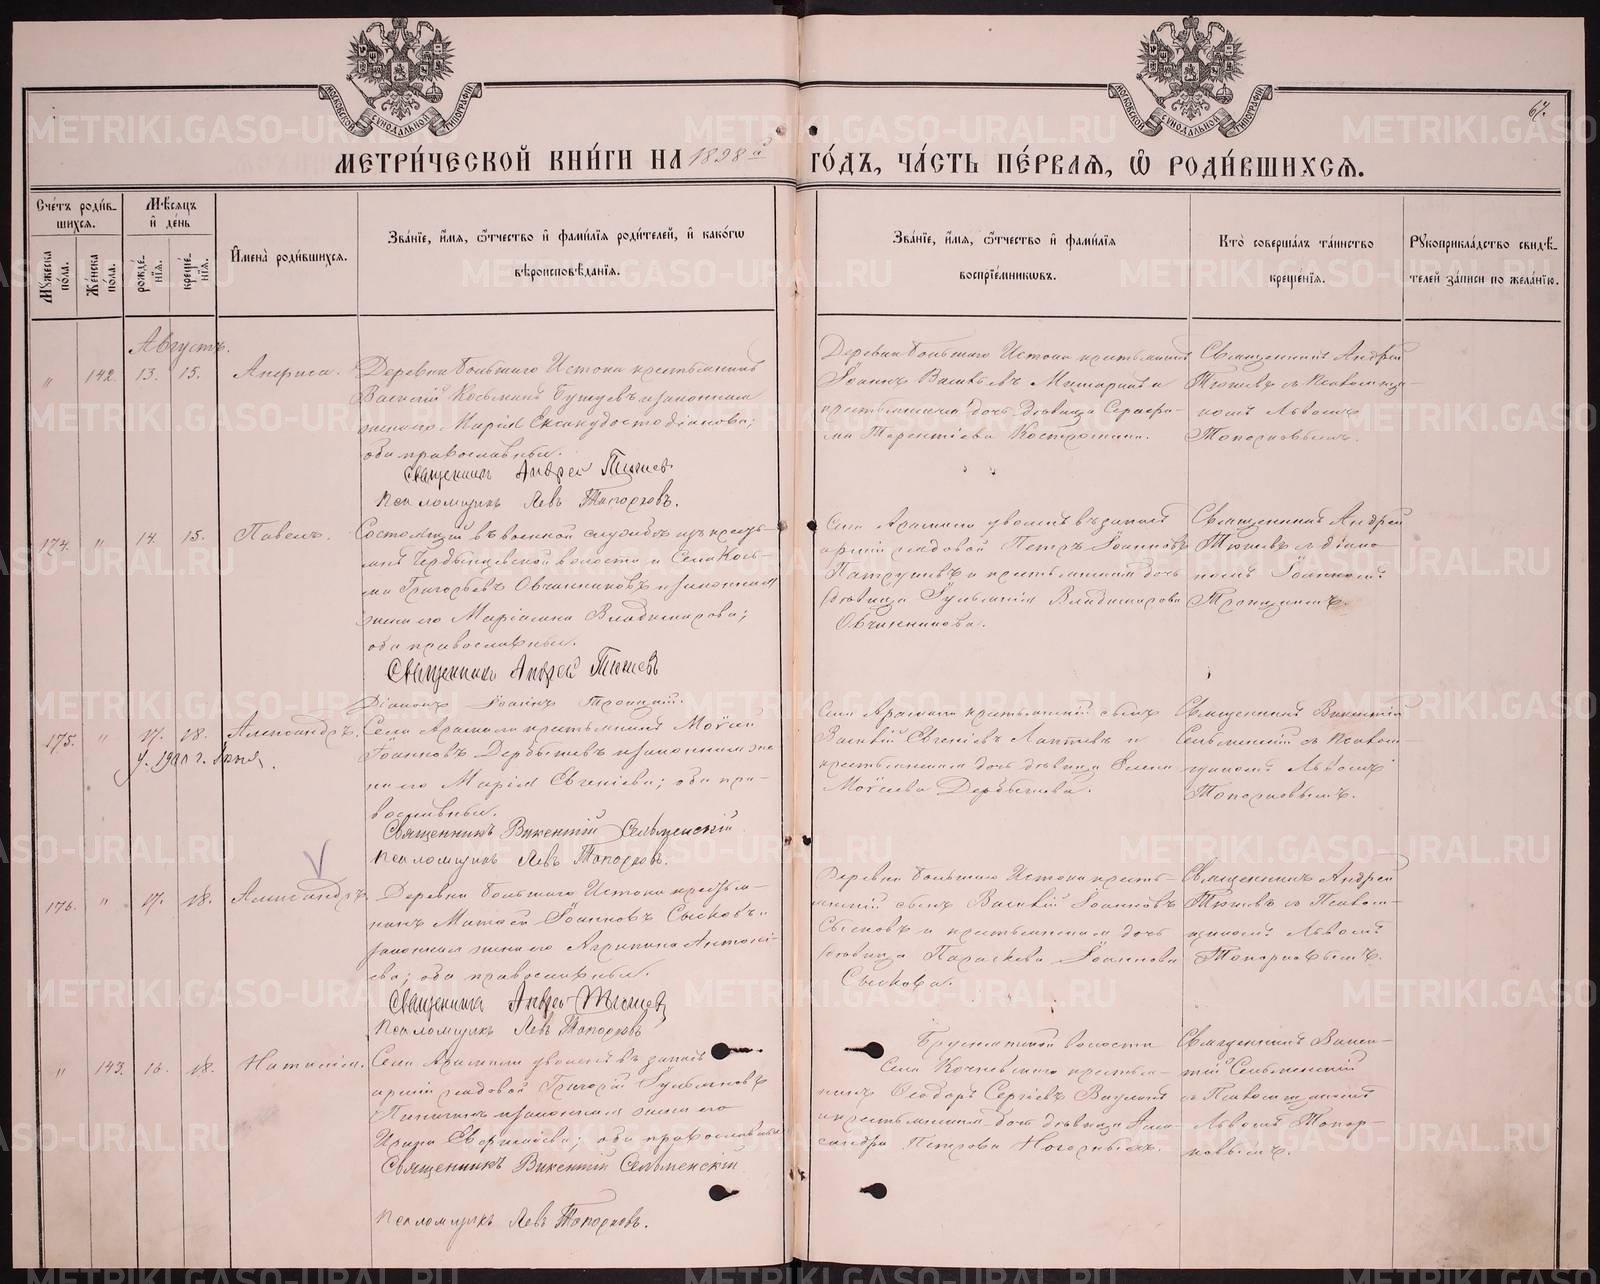 МОСКОВСКОЙ СУНОДАЛЬНОЙ ТИПОГРАФІИ
МОСКОВСКОЙ СУНОДАЛЬНОЙ ТИПОГРАФІИ
67.
МЕТРИ́ЧЕСКОЙ КНИ́ГИ НА 1898й ГО́ДЪ, ЧА́СТЬ ПЕ́РВАЯ, Ѽ РОДИ́ВШИХСЯ.
Сче́тъ роди́в-
шихся.
Мꙋжеска по́ла.
Же́нска по́ла.
Мѣ́сяцъ
и҆ де́нь
рожде́нїя.
креще́нїя.
И҆мена̀ роди́вшихся.
Зва́нїе, и҆́мя, ѻ҆́тчество и҆ фами́лїя роди́телей, и҆ како́гѡ
вѣроисповѣ́данїя.
Зва́нїе, и҆́мя, ѻ҆́тчество и҆ фами́лїя
воспрїе́мниковъ.
Кто̀ соверша́лъ та́инство
креще́нїя.
Рꙋкоприкла́дство свидѣ́-
телей за́писи по жела́нїю.
Августъ.
" 142. 13. 15. Анфиса.
Деревни Большаго Истока крестьянинъ
Василій Козьминъ и законная
жена его Марія
оба православные.
Священникъ Андрей Тюшевъ
Псаломщикъ Левъ Топорковъ.
Деревни Большаго Истока крестьянинъ
Іоаннъ Васильевъ и
крестьянская дочь девица Серафи-
ма Терентіева Костромина.
Священникъ Андрей
Тюшевъ съ Псаломщи-
комъ Львомъ
Топорковымъ.
174. " 14. 15. Павелъ.
Состоящій въ военной службѣ изъ кресть-
янъ волости и Села Козь-
ма Григорьевъ Овчинниковъ и законная
жена его Маріамна Владимірова;
оба православные.
Священникъ Андрей Тюшевъ
Діаконъ Іоаннъ Троицкій.
Села Арамили уволен въ запасъ
арміи рядовой Петръ Іоанновъ
Патрушевъ и крестьянская дочь
девица Іуліанія Владимірова
Овчинникова.
Священникъ Андрей
Тюшевъ съ діако-
номъ Іоанномъ
Троицкимъ.
175. " 17. 18. Александръ.
у. 1900 г.
Села Арамили крестьянинъ Моѵсей
Іоанновъ Дербышевъ и законная же-
на его Марія Евгеніева; оба пра-
вославные.
Священникъ Викентій Сельменскій
Псаломщикъ Левъ Топорковъ.
Села Арамили крестьянскій сынъ
Василій Евгеніевъ Лаптевъ и
крестьянская дочь девица Елена
Моѵсеева Дербышева.
Священникъ Викентій
Сельменскій съ Псалом-
щикомъ Львомъ
Топорковымъ.
176. " 17. 18. Александръ.
Деревни Большаго Истока крестья-
нинъ Матѳей Іоанновъ Сысковъ и
законная жена его Агрипина Антоні-
ева; оба православные.
Священникъ Андрей Тюшевъ
Псаломщикъ Левъ Топорковъ
Деревни Большаго Истока кресть-
янскій сынъ Василій Іоанновъ
Сысковъ и крестьянская дочь
девица Параскева Іоаннова
Сыскова.
Священникъ Андрей
Тюшевъ съ Псалом-
щикомъ Львомъ
Топорковымъ.
" 143. 16. 18. Наталія.
Села Арамили уволен въ запасъ
арміи рядовой Григорій Іуліановъ
и законная жена его
оба православные
Священникъ Викентій Сельменскій
Псаломщикъ Левъ Топорковъ.
волости
Села крестья-
нинъ Ѳеодоръ Сергіевъ
и крестьянская дочь девица Алек-
сандра Петрова
Священникъ Викен-
тій Сельменскій
съ Псаломщикомъ
Львомъ Топор-
ковымъ.
METRIKI.GASO-URAL.RU